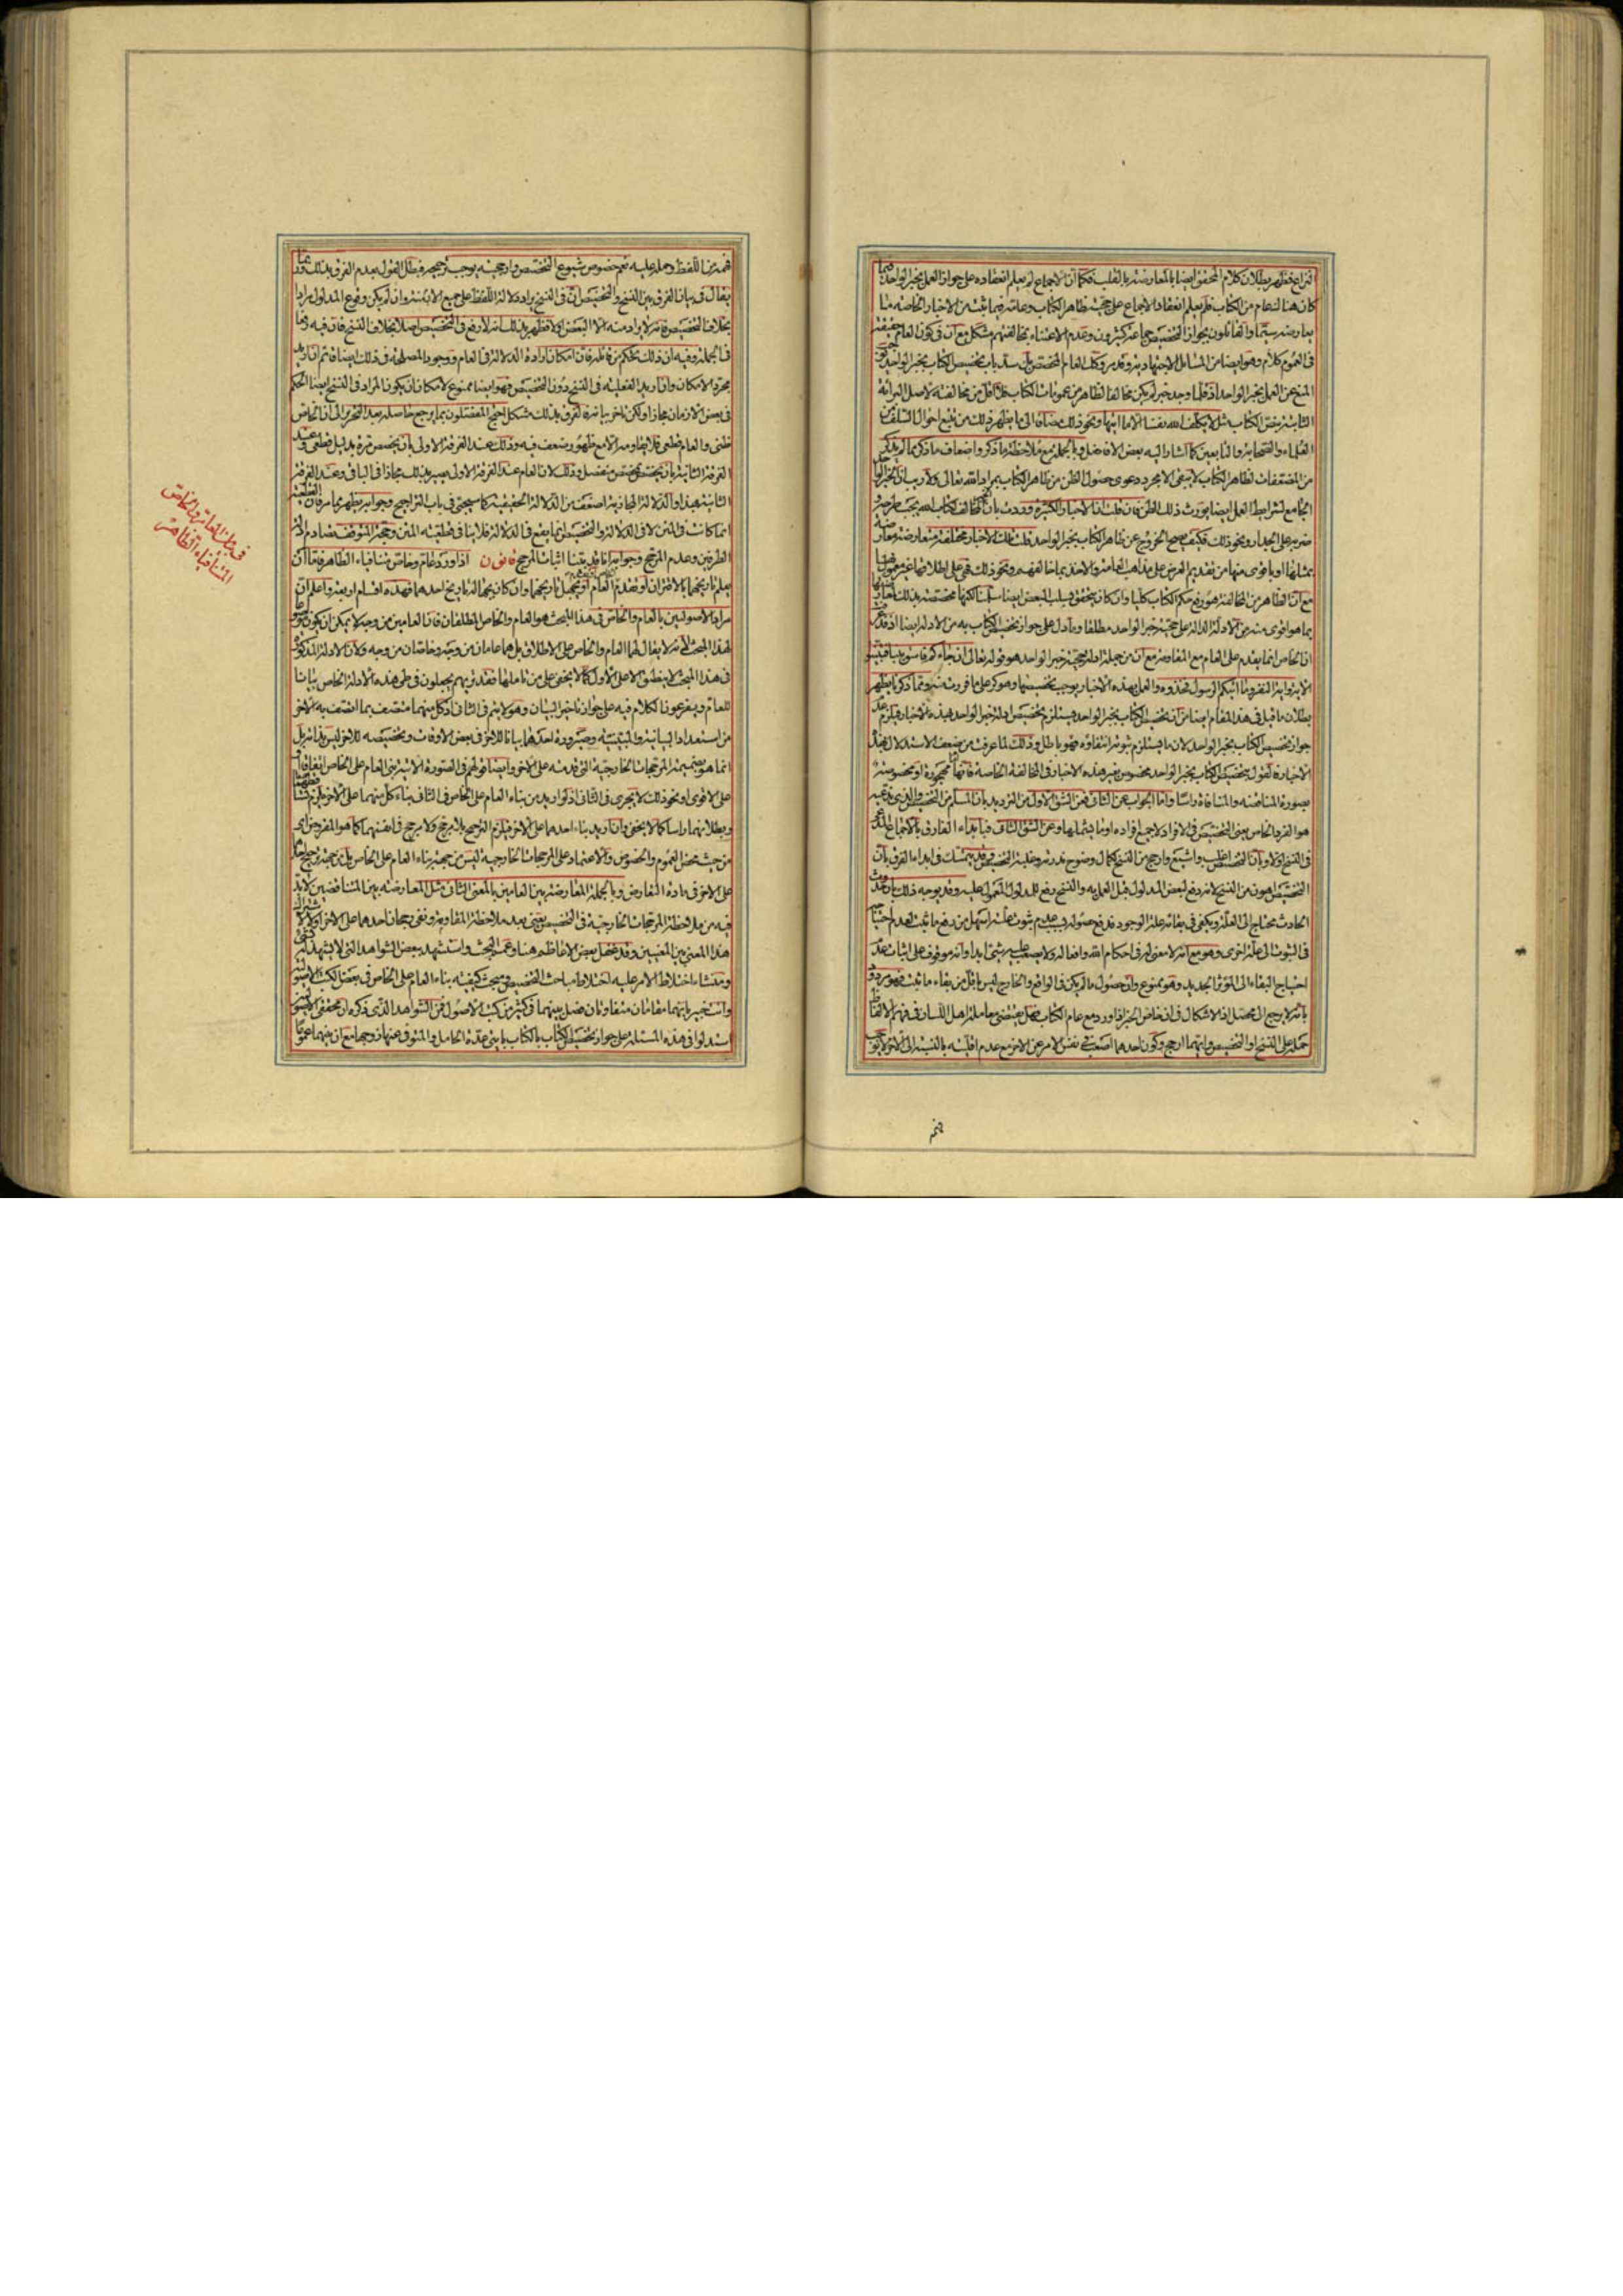 نزاع فظهر بطلان كلام المحقق ايضا بالمعارضة بالقلب فكما ان الاجماع لم يعلم انعقاده على جواز العمل بخبر الواحد فيما
كان هناك عام من الكتاب فلم يعلم انعقاد الاجماع على حجية ظاهر الكتاب وعامه فيما ثبت من الاخبار الخاصة ما
يعارضه سيما والقائلون بجواز التخصيص جماعة كثيرون وعدم الاعتناء بمخالفتهم مشكل مع ان في كون العام حقيقة
في العموم كلام وهو ايضا من المسائل الاجتهادية
المنع عن العمل بخبر الواحد اذ قلما وجد خبر لم يكن مخالفا لظاهر من عمومات الكتاب فلا اقل من مخالفته لاصل البرائة
الثابتة بنص الكتاب مثل لا يكلف الله نفسا الا ما اتيها ونحو ذلك مضافا الى ما يظهر ذلك من تتبع احوال السلف من
العلماء والصحابة والتابعين كما اشار اليه بعض الافاضل وبالجملة مع ملاحظة ما ذكر واضعاف ما ذكر مما لم يذكر
من المضعفات لظاهر الكتاب لا يبقى الا مجرد دعوى حصول الظن من ظاهر الكتاب بمراد الله تعالى ولا ريب ان الخبر
الجامع لشرايط العمل ايضا يورث ذلك الظن فان قلت ان الاخبار الكثيرة وردت بان ما خالف كتاب الله يجب طرحه و
ضربه على الجدار ونحو ذلك فكيف يصح الخروج عن ظاهر الكتاب بخبر الواحد قلت تلك الاخبار مختلفة متعارضة
بمثلها او باقوى منها من تقديم العرض على مذاهب العامة والاخذ بما خالفهم ونحو ذلك فهي على اطلاقها غير
مع ان الظاهر من المخالفة هو رفع حكم الكتاب كليا وان كان يتحقق بسلب البعض ايضا سلمنا لكنها مخصصة بذلك
بما هو اقوى منه من الادلة الدالة على حجية خبر الواحد مطلقا وما دل على جواز تخصيص الكتاب به من الادلة ايضا
ان الخاص انما يقدم على العام مع المقاومة مع ان من جملة ادلة حجية خبر الواحد هو قوله تعالى ان جاءكم فاسق بنبأ فتبينوا
الاية واية النفر وما اتيكم الرسول فخذوه والعمل بهذه الاخبار يوجب تخصيصها وهو كر على ما فررت منه ومما ذكرنا يظهر
بطلان ما قيل في هذا المقام ايضا من ان تخصيص الكتاب بخبر الواحد يستلزم تخصيص ادلة خبر الواحد بهذه الاخبار فيلزم عدم
جواز تخصيص الكتاب بخبر الواحد لان ما يستلزم ثبوته انتفاؤه فهو باطل وذلك لما عرفت من ضعف الاستدلال بهذه
الاخبار
بصورة المناقضة والمنافاة راسا واما الجواب عن الثاني فعن الشق الاول من الترديد
هو الفرد الخاص يعني التخصيص في الافراد لا جميع افراده او ما يشملها وعن الشق الثاني فبابداء الفارق بالاجماع
في النسخ اولا وبان التخصيص اغلب واشيع وارجح من النسخ لكمال وضوح ندرته وغلبة التخصيص وقد يتمسك في ابداء الفرق بان
التخصيص اهون من النسخ لانه دفع لبعض المدلول قبل العمل به والنسخ رفع للمدلول المعمول عليه وقد يوجه ذلك بان
الحادث محتاج الى العلة ويكفي في بقائه علة الوجود فدفع حصوله بسبب عدم ثبوت علته اسهل من رفع ما ثبت
في الثبوت الى علة اخرى وهو مع انه لا معنى له في احكام الله وافعاله ولا يصعب عليه شيء ابدا وانه موقوف على اثبات عدم
احتياج البقاء الى المؤثر الجديد وهو ممنوع وان حصول ما لم يكن في الواقع والخارج ليس باقل من بقاء ما ثبت فهو مردود
بانه لا يرجع الى محصل اذ لا اشكال في ان خاص الخبر اذا ورد مع عام الكتاب فهل يقتضي معاملة اهل اللسان في فهم الالفاظ
حمله على النسخ او التخصيص وايهما ارجح وكون احدهما اصعب في نفس الامر عن الاخر مع عدم اقليته بالنسبة الى الاخر لا يوجب
فهم
فهم هذا اللفظ وحمله عليه نعم خصوص شيوع التخصيص وارجحيته يوجب ترجيحه فبطل القول بعدم الفرق بذلك وربما
يقال في بيان الفرق بين النسخ والتخصيص ان في النسخ يراد دلالة اللفظ على جميع الازمنة وان لم يكن وقوع المدلول مرادا
بخلاف التخصيص فانه لا يراد منه الا البعض اولا فظهر بذلك انه لا رفع في التخصيص اصلا بخلاف النسخ فان فيه رفعا
في الجملة وفيه ان ذلك تحكم من قائله فان امكان ارادة الدلالة في العام ووجود المصلحة في ذلك ايضا قائم ان اريد
مجرد الامكان وان اريد الفعلية في النسخ دون التخصيص فهو ايضا ممنوع لامكان ان يكون المراد في النسخ ايضا الحكم
في بعض الازمان مجازا ولكن تاخر بيانه فالفرق بذلك مشكل احتج المفصلون بما يرجع حاصله بعد التحرير الى ان الخاص
ظني والعام قطعي فلا يقاومه الا مع ظهور ضعف فيه وذلك عند الفرقة الاولى بان يخصص مرة بدليل قطعي وعند
الفرقة الثانية بان يخصص بمخصص منفصل وذلك لان العام عند الفرقة الاولى يصير بذلك مجازا في الباقي وعند الفرقة
الثانية بهذا والدلالة المجازية اضعف من الدلالة الحقيقية كما سيجئ في باب التراجيح وجوابه يظهر مما مر فان القطعية
انما كانت في المتن لا في الدلالة والتخصيص انما يقع في الدلالة فلا ينافي قطعية المتن وحجة المتوقف تصادم ادلة
الطرفين وعدم المرجح وجوابه انا قد بينا اثبات المرجح قانون اذا ورد عام وخاص متنافيا الظاهر فاما ان
يعلم تاريخهما بالاقتران او بتقدم العام او يجهل تاريخهما وان كان بجهالة تاريخ احدهما فهذه اقسام اربعة واعلم ان
مراد الاصوليين بالعام والخاص في هذا المبحث هو العام والخاص المطلقان فان العامين من وجه لا يمكن ان يكون
لهذا المبحث لانه لا يقال لهما العام والخاص على الاطلاق بل هما عامان من وجه وخاصان من وجه ولان الادلة المذكورة
في هذا المبحث لا ينطبق الا على الاول كما لا يخفى على من تاملها فقد تريهم يجعلون في طي هذه الادلة الخاص بيانا
للعام ويفرعون الكلام فيه على جواز تاخير البيان وهو لا يتم في الثاني اذ كل منهما متصف بما اتصف به الاخر
من استعداد البيانية والمبينية وصيرورة احدهما بيانا للاخر في بعض الاوقات وتخصيصه للاخر ليس بذاته بل
انما هو بضميمة المرجحات الخارجية التي قدمته على الاخر وايضا قولهم في الصورة الاتية يبنى العام على الخاص اتفاقا
على الاقوى او نحو ذلك لا يجري في الثاني اذ لو اريد من بناء العام على الخاص في الثاني بناء كل منهما على الاخر فيلزم
وبطلانهما راسا كما لا يخفى وان اريد بناء احدهما على الاخر فيلزم الترجيح بلا مرجح ولا مرجح في انفسهما كما هو المفروض اي
من حيث محض العموم والخصوص والاعتماد على المرجحات الخارجية ليس من جهة بناء العام على الخاص بل من جهة ترجيح
على الاخر في مادة التعارض وبالجملة المعارضة بين العامين بالمعنى الثاني مثل المعارضة بين المتناقضين لا بد
فيه من ملاحظة المرجحات الخارجية
هذا المعنى بين المعنيين وقد غفل بعض الاعاظم هنا وعمم البحث واستشهد ببعض الشواهد التي لا يشهد له
ومنشاء اختلاط الامر عليه اختلاط مباحث التخصيص ومبحث كيفية بناء العام على الخاص في بعض الكتب الاصولية
وانت خبير بانهما مقامان متفاوتان فصل بينهما في كثير من كتب الاصول فمن الشواهد الذي ذكره ان محققي الاصوليين
استدلوا في هذه المسئلة على جواز تخصيص الكتاب بالكتاب بايتي عدة الحامل والمتوفى عنها زوجها مع ان بينهما عموما
في بيان العام والخاص
المتنافيا الظاهر